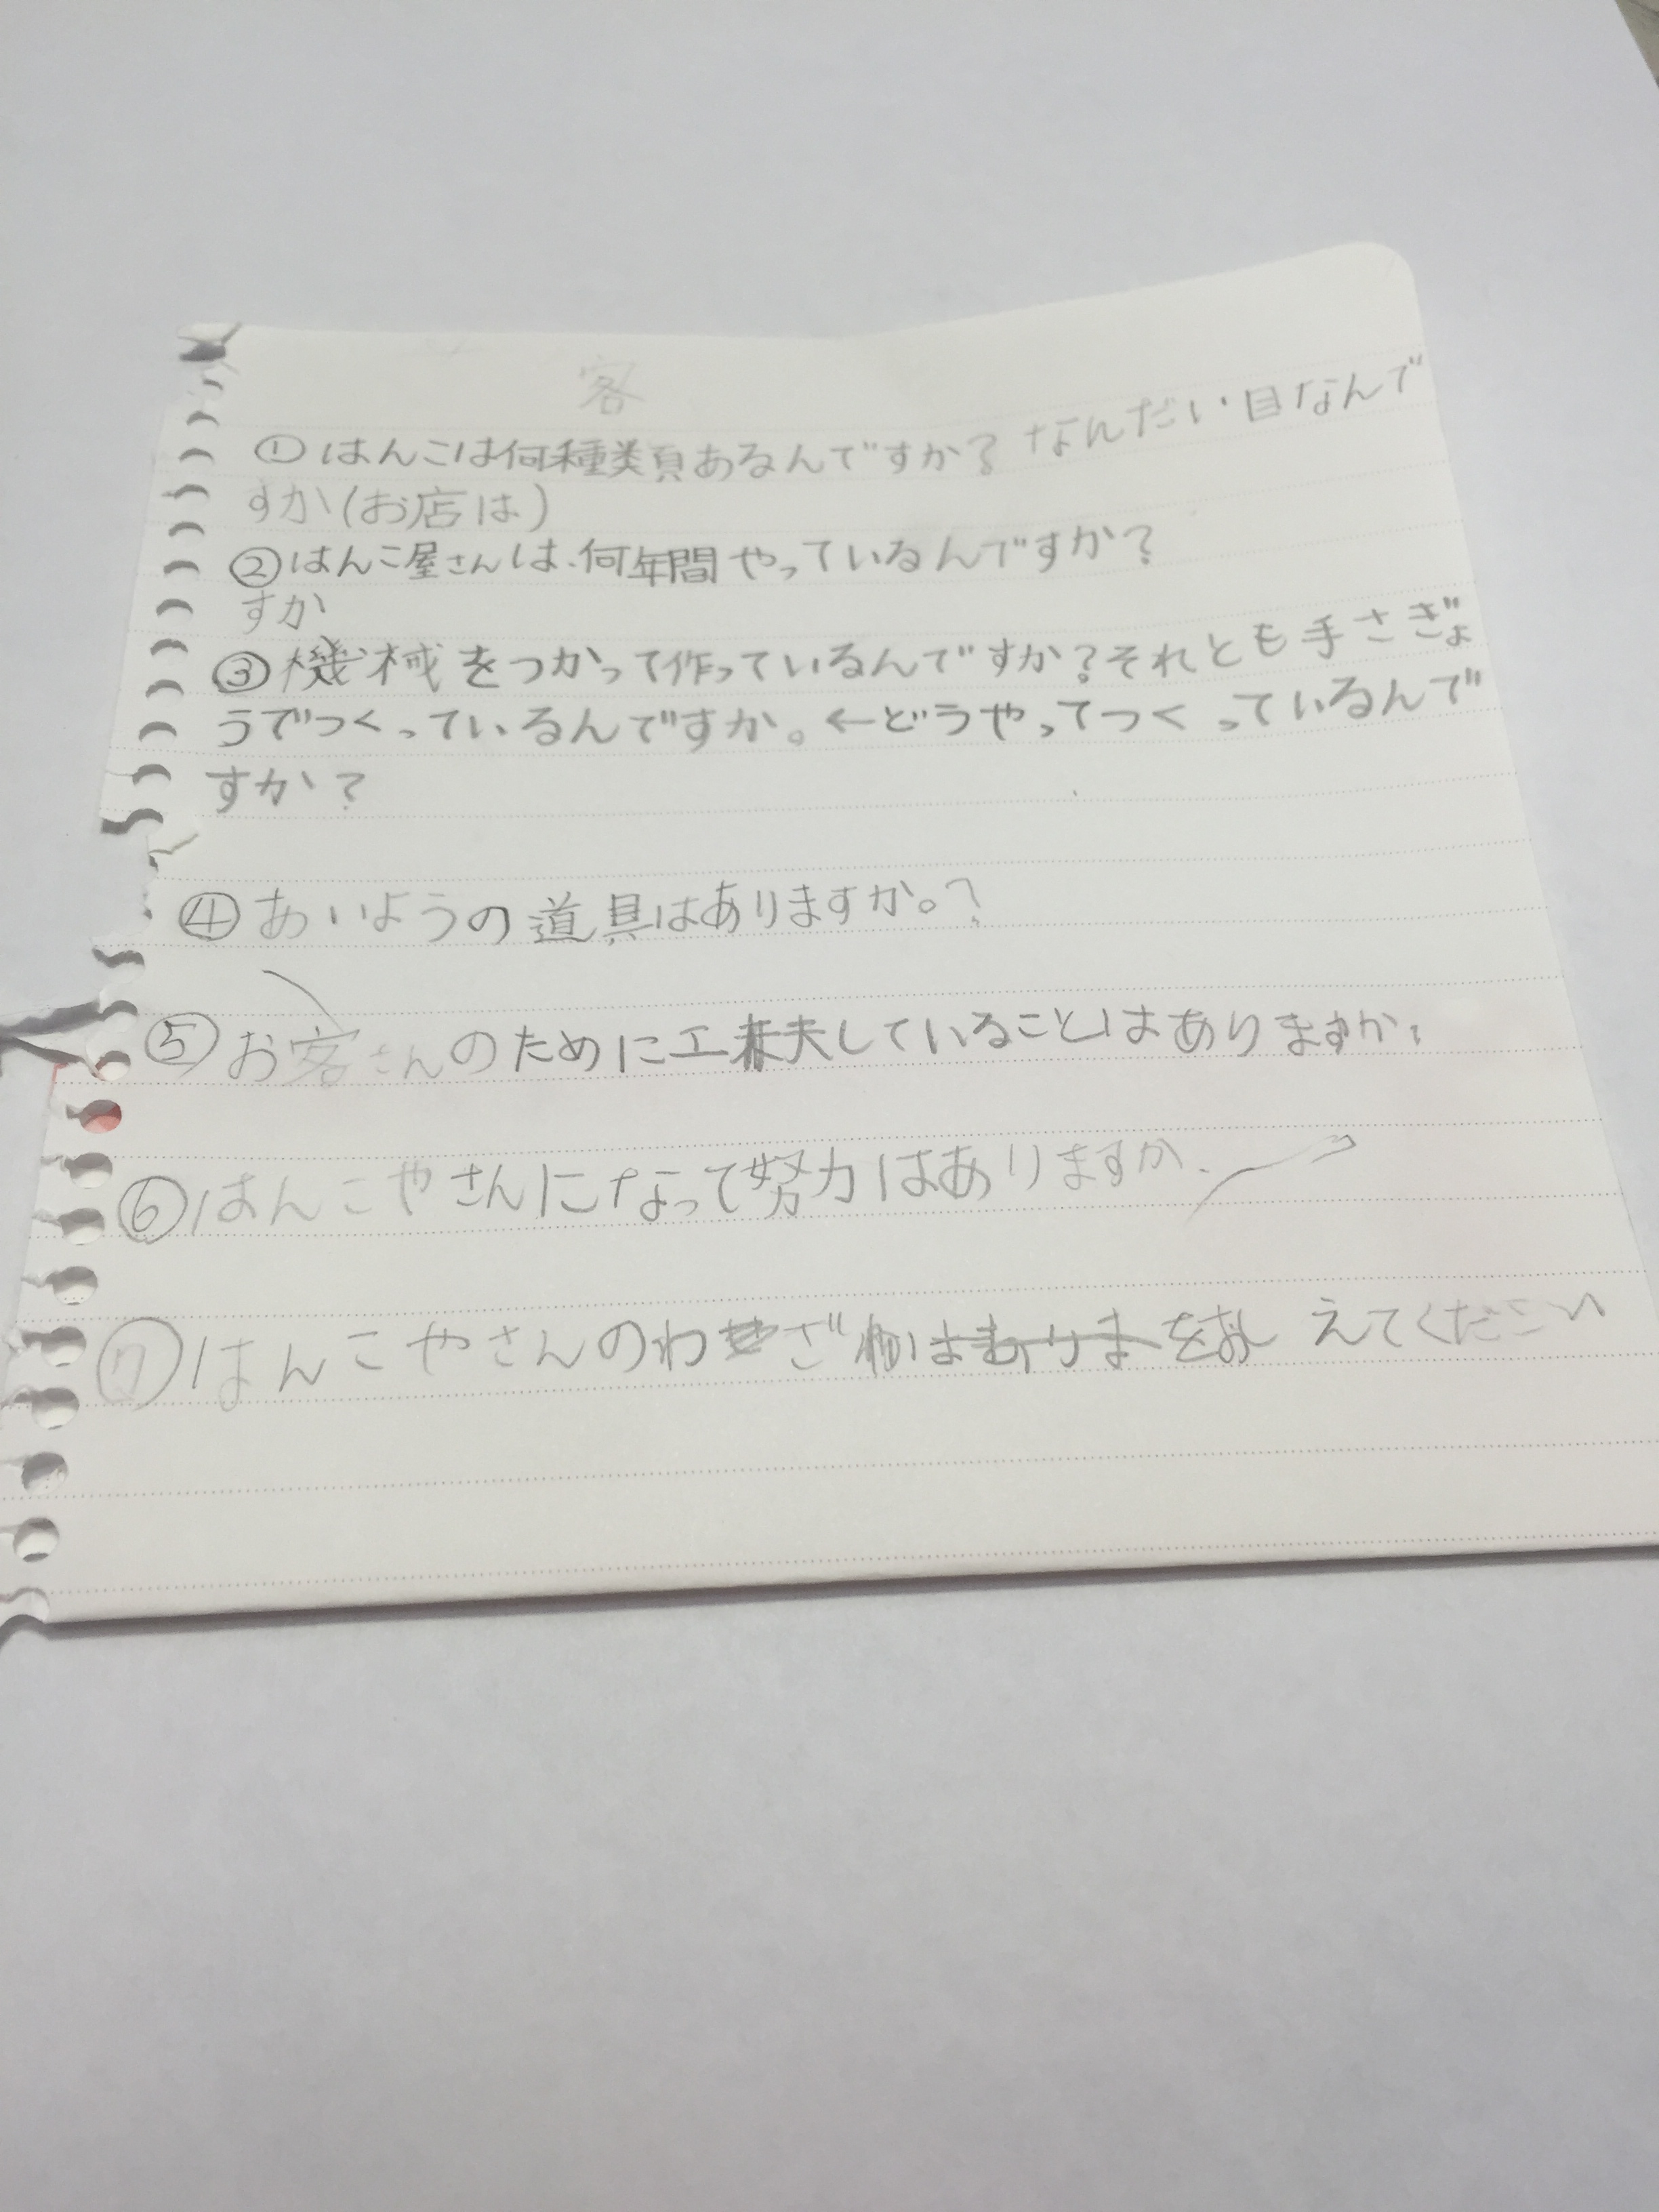 客
①はんこは何種類あるんですか？なんだい目なんで
すか(お店は)
②はんこ屋さんは、何年間やっているんですか？
すか
③機械をつかって作っているんですか？それとも手さぎょ
うでつくっているんですか。←どうやってつくっているんで
すか？
④あいようの道具はありますか。？
⑤お客さんのために工夫していることはありますか？
⑥はんこやさんになって努力はありますか、
⑦はんこやさんのわざはありまをおしえてください